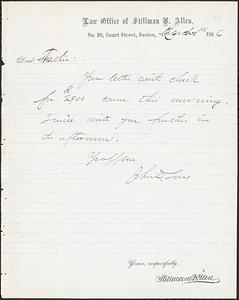 Law Office of Stillman B. Allen,
No. 20, Court Street, Boston, 186 6
Dear
Your letter with check
for 2900 came this morning.
I will write you further in
the afternoon.
John D.
Yours, respectfully,
Stillman B. Allen